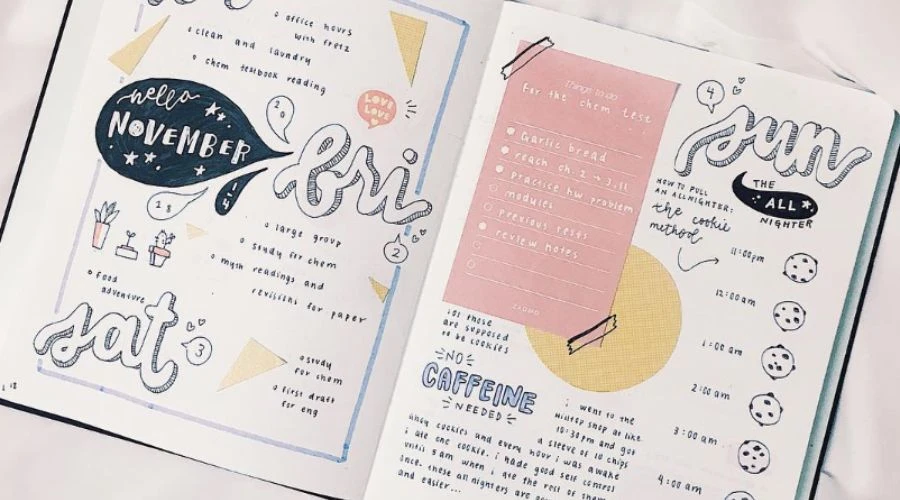 office hours
with fretz
clean and laundry
chem textbook reading
hello
NOVEMBER
LOVE
LOVE
fri
2
large group
study for chem
myth readings and
revisions for paper
food
adventure
sat
3
study
for chem
first draft
for eng
things to do
For the chem test
Garlic bread
reach ch. 2 → 3.11
practice hw problem
modules
previous tests
review notes
4
sun
HOW TO PULL
AN ALLNIGHTER:
the cookie
method
THE
ALL
NIGHTER
11:00pm
12:00am
1:00 am
2:00 am
3:00 am
4:00 am
those
are supposed
to be cookies
NO
CAFFEINE
NEEDED
i went to the
hilltop shop at like
10:30pm and got
a sleeve of 10 chips
ahoy cookies and every hour i was awake
i ate one cookie. i had good self control
until 5am when i ate the rest of them
once. these allnighters are
and easier...